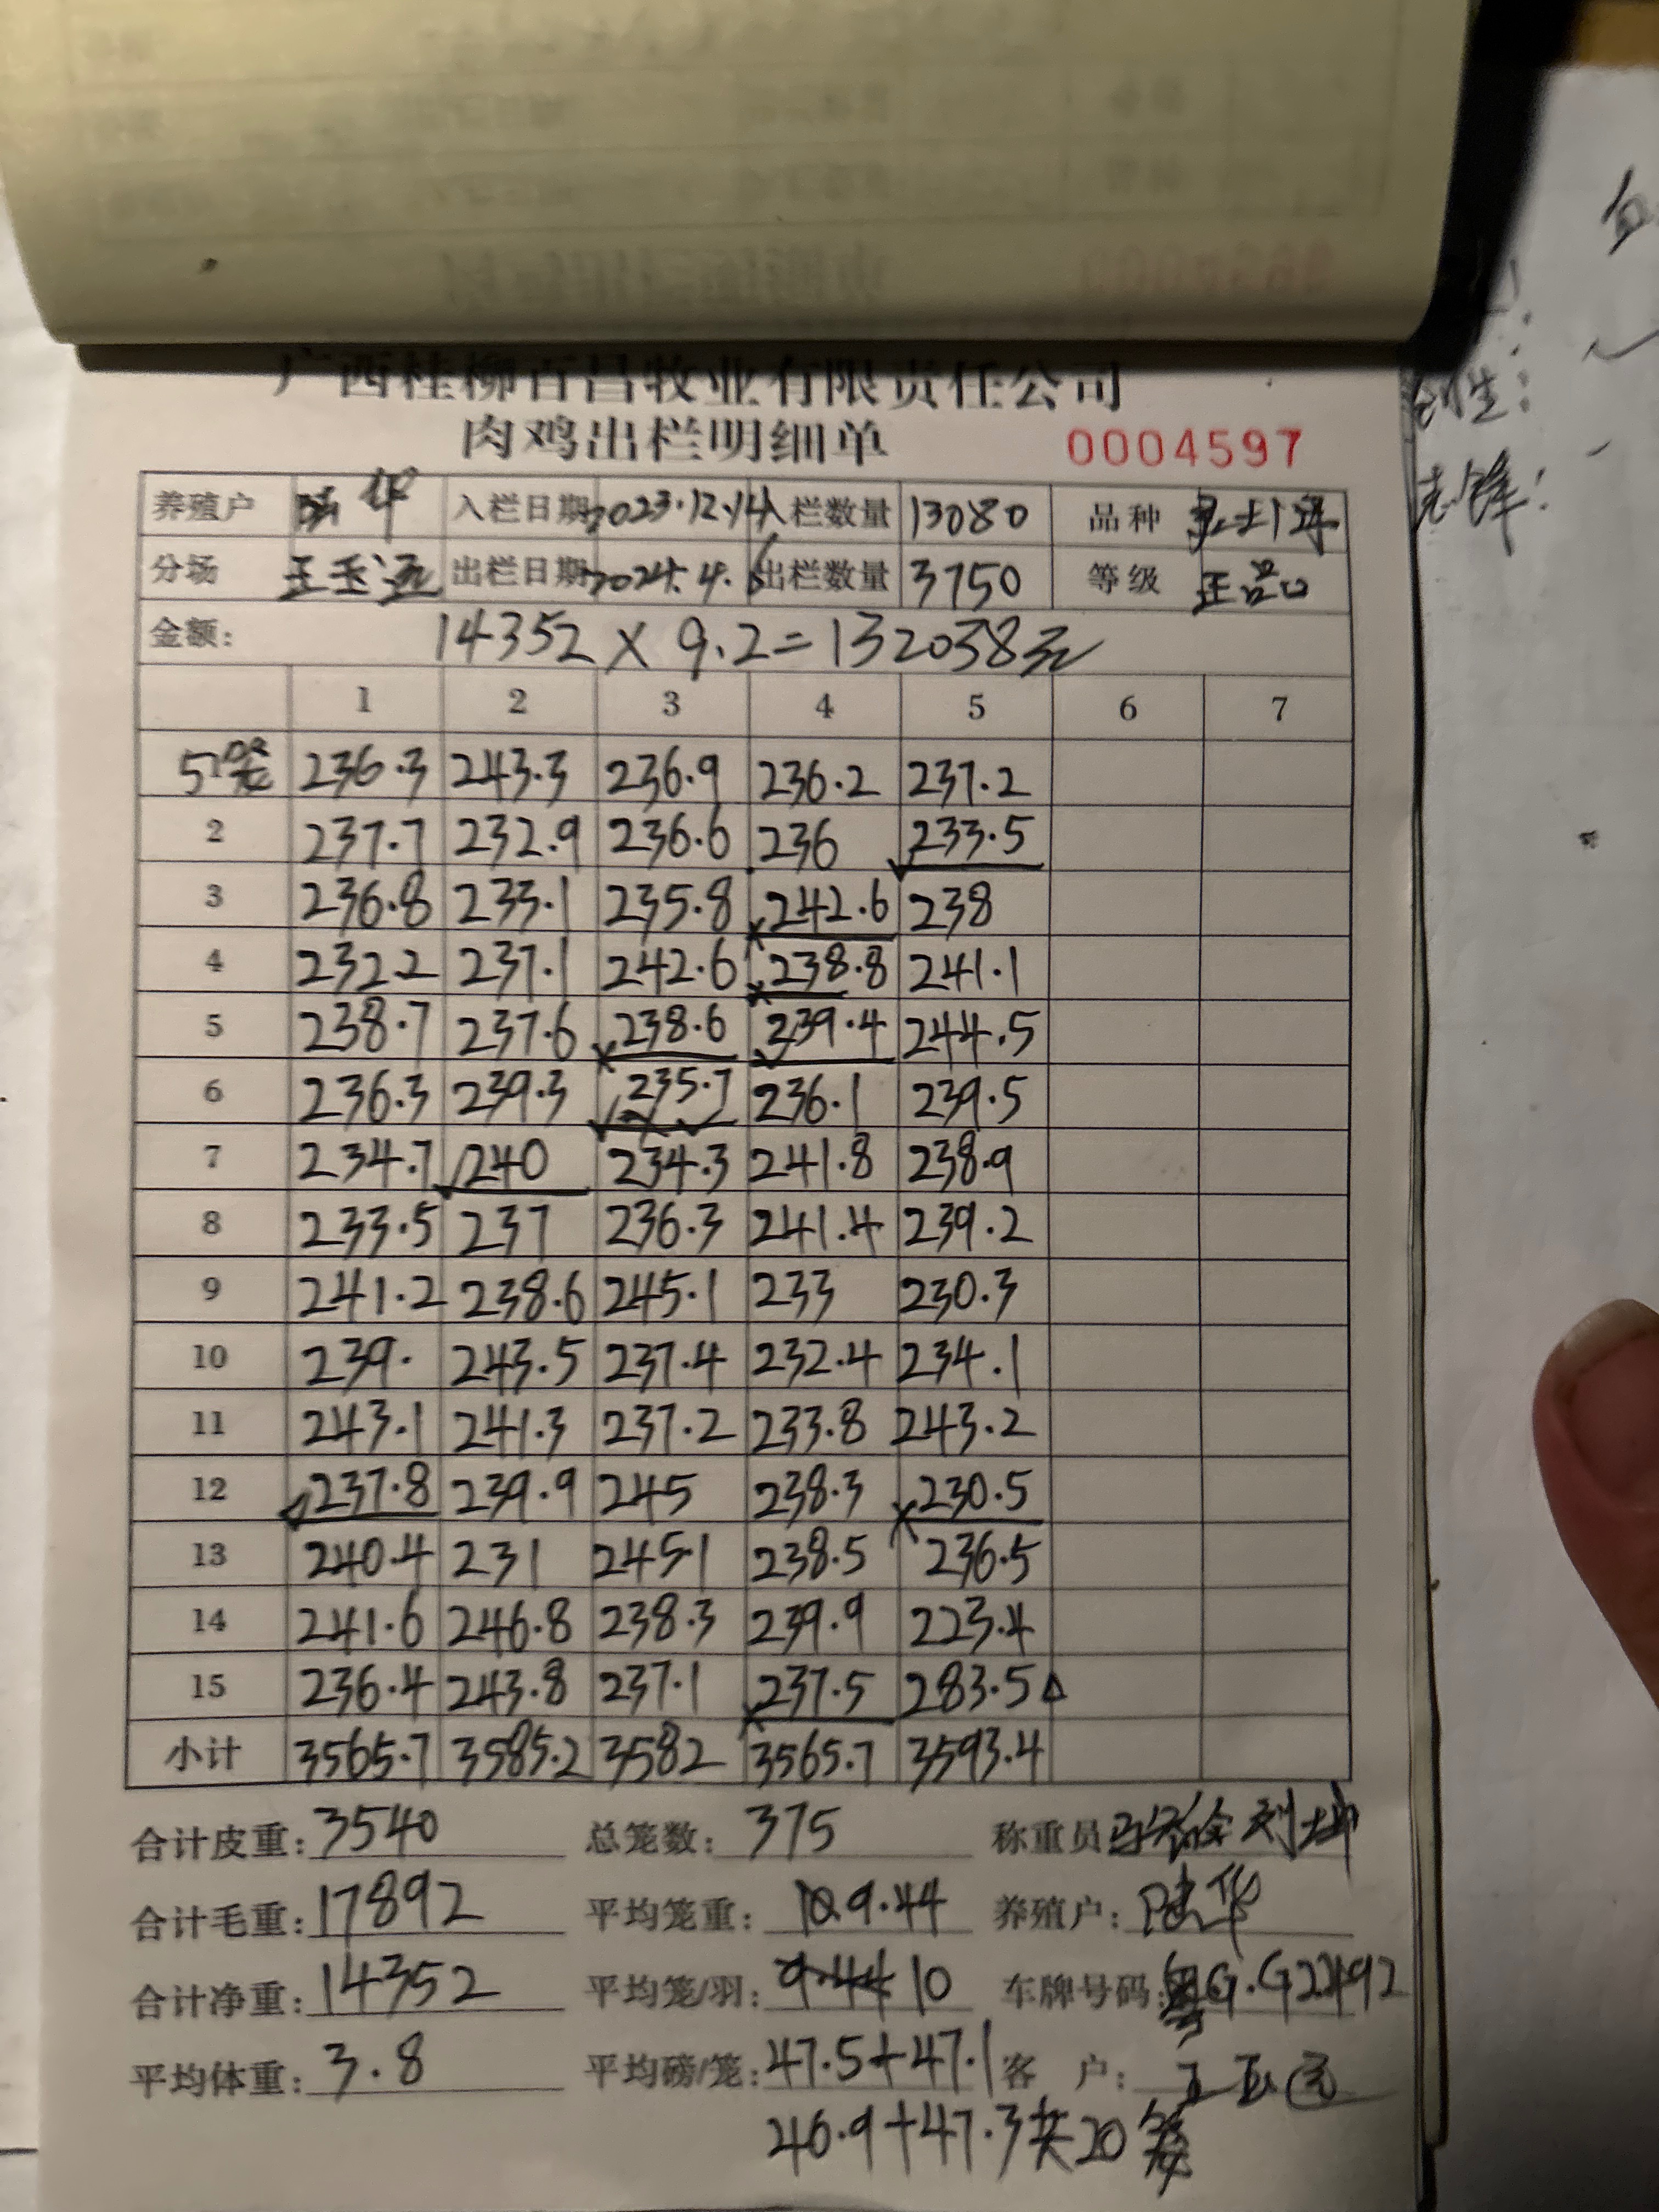 广西桂柳百昌牧业有限责任公司
肉鸡出栏明细单 0004597
养殖户 陆华 入栏日期 2023.12.14 入栏数量 13080 品种
分场 王玉 出栏日期 2024.4.6 出栏数量 3750 等级 正品
金额: 14352 × 9.2=132038元
1 2 3 4 5 6 7
5笼 236.3 243.3 236.9 236.2 237.2
2 237.7 232.9 236.6 236 233.5
3 236.8 233.1 235.8 242.6 238
4 232.2 237.1 242.6 238.8 241.1
5 238.7 237.6 238.6 239.4 244.5
6 236.3 239.3 235.7 236.1 239.5
7 234.7 240 234.3 241.8 238.9
8 233.5 237 236.3 241.4 239.2
9 241.2 238.6 245.1 233 230.3
10 239. 243.5 237.4 232.4 234.1
11 243.1 241.3 237.2 233.8 243.2
12 237.8 239.9 245 238.3 230.5
13 240.4 231 245.1 238.5 236.5
14 241.6 246.8 238.3 239.9 223.4
15 236.4 243.8 237.1 237.5 283.5
小计 3565.7 3585.2 3582 3565.7 3593.4
合计皮重: 3540 总笼数: 375 称重员
合计毛重: 17892 平均笼重: 9.44 养殖户: 陆华
合计净重: 14352 平均笼/羽: 9.44 10 车牌号码: 粤G.G22492
平均体重: 3.8 平均磅/笼: 47.5+47.1 客 户: 王玉
46.9+47.3共20笼